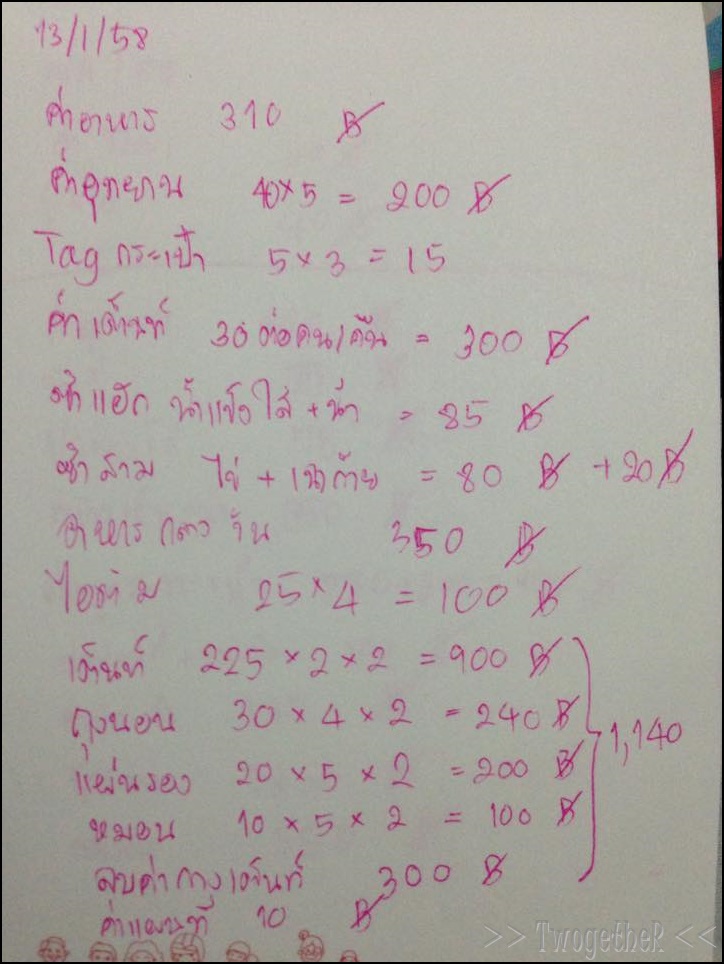 13/1/58
ค่าอาหาร 310 ฿
ค่าอุทยาน 40×5 = 200 ฿
Tag กระเป๋า 5×3 = 15
ค่าเต้นท์ 30 ต่อคน/คืน = 300 ฿
น้ำแข็งใส + น้ำ = 85 ฿
ไข่ + = 80 ฿ +20฿
อาหารกลางวัน 350 ฿
ไอติม 25×4 = 100 ฿
เต็นท์ 225 × 2 × 2 = 900 ฿
ถุงนอน 30 × 4 × 2 = 240 ฿
1,140
แผ่นรอง 20 × 5 × 2 = 200 ฿
หมอน 10 × 5 × 2 = 100 ฿
ลบค่ากางเต็นท์ 300 ฿
ค่าแผนที่ 10 ฿
>> TwogetheR <<